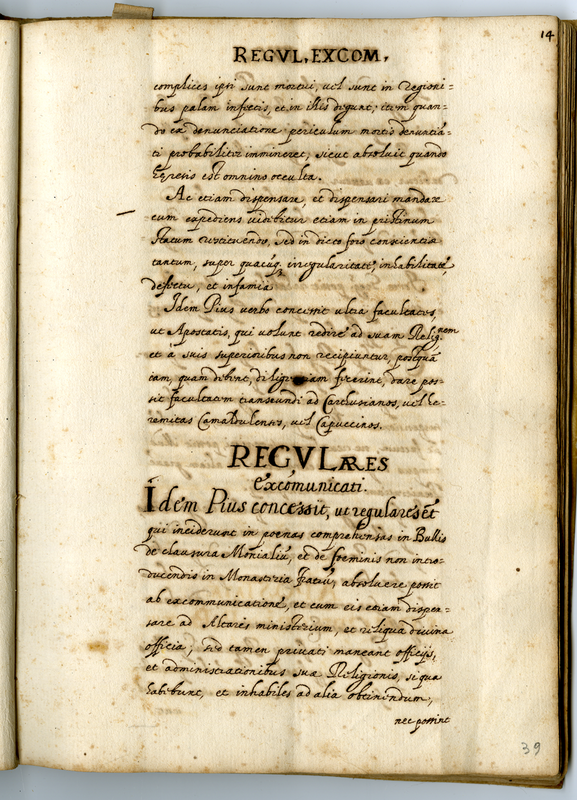 14
REGVL. EXCOM.
complices ipsi sunt mortui, vel sunt in regioni=
bus palam infectis, et in illis degunt; item quan=
do ex denunciatione periculum mortis denuntia=
ti probabiliter immineret; sicut absolvit quando
heresis est omnino occulta.
Ac etiam dispensare, et dispensari mandare
cum expediens videbitur etiam in pristinum
statum restituendo, sed in dicto foro conscientiæ
tantum, super quacūq; irregularitate, inhabilitate,
defectu, et infamia
Idem Pius verbo concessit ultra facultates,
ut Apostatis, qui volunt redire ad suam Relig.nem
et à suis superioribus non recipiuntur, postquā
eam, quam debent, diligentiam fecerint, dare pos=
sit facultatem transeundi ad Carthusianos, vel He=
remitas Camaldulenses, vel Capuccinos.
REGVLARES
excomunicati.
Idem Pius concessit, ut regulares ēt
qui inciderunt in poenas comprehensas in Bullis
de clausura Monialiū, et de foeminis non intro=
ducendis in Monasteria fratrū, absolvere possit
ab excommunicatione, et cum eis etiam dispen=
sare ad Altares ministerium, et reliqua divina
officia; sed tamen privati maneant officijs,
et administrationibus suæ Religionis, si qua
habebunt, et inhabiles ad alia obtinendum,
nec possint
39